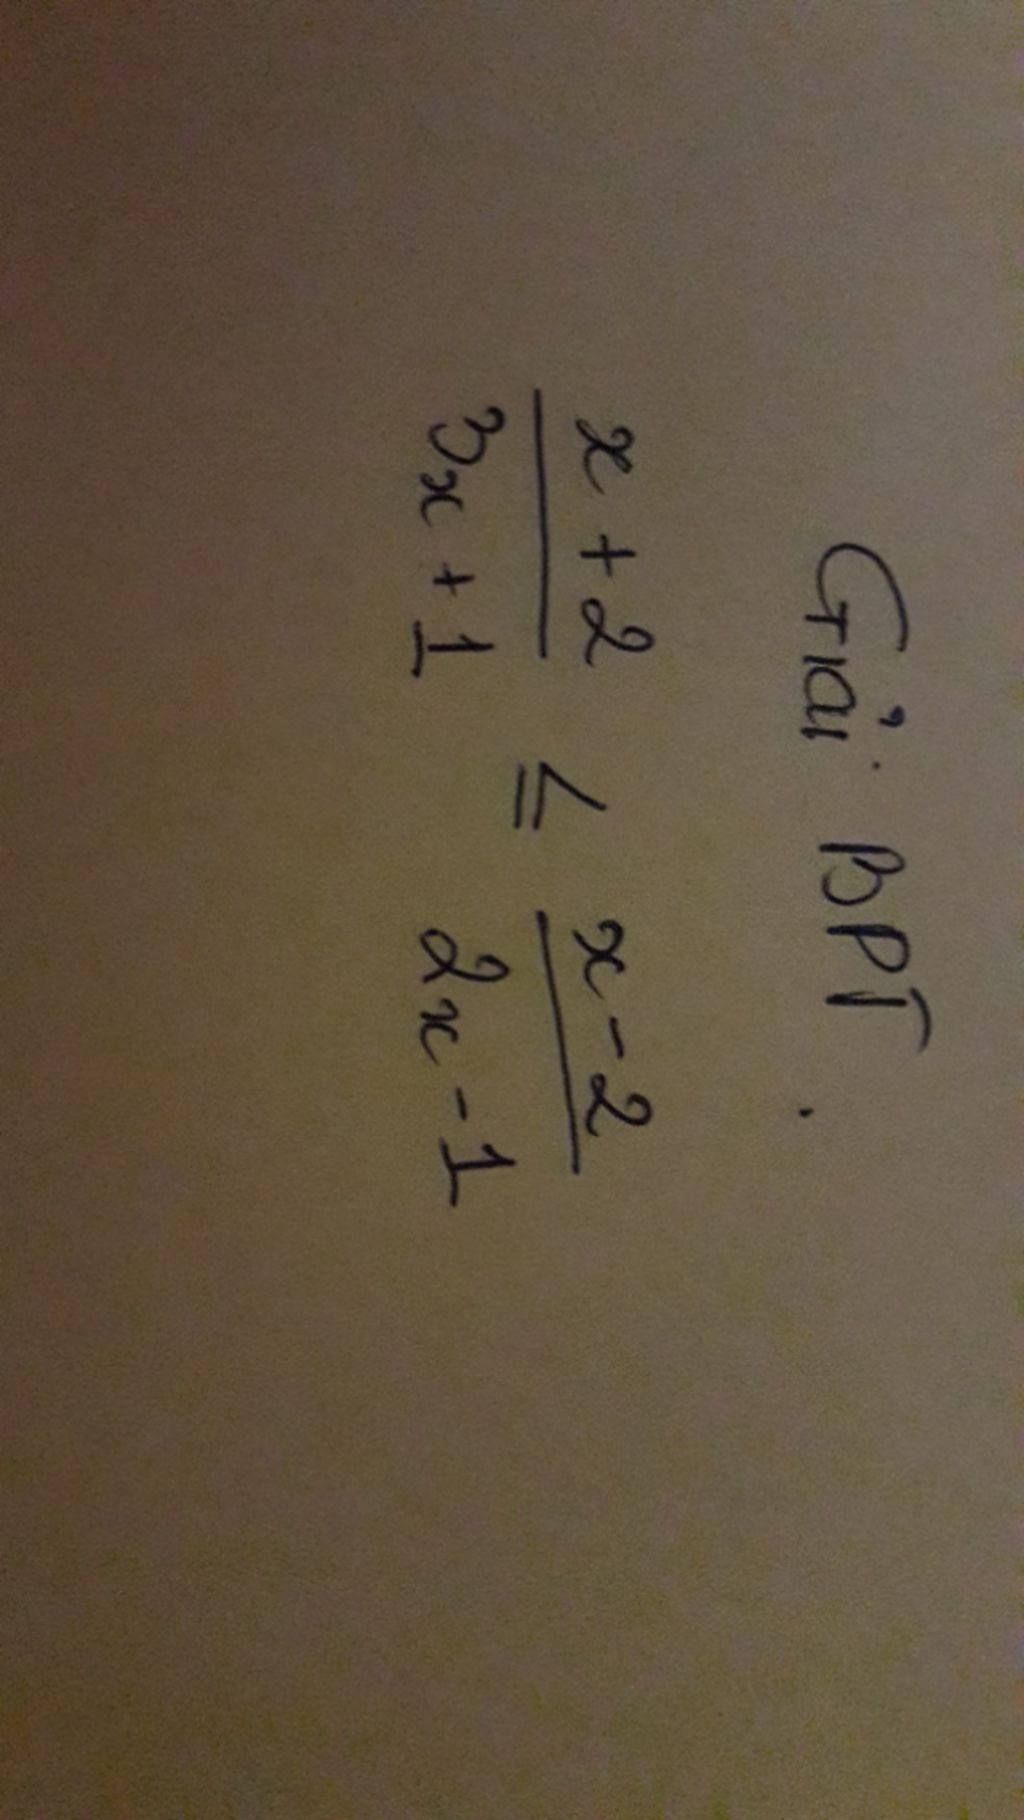 Giải BPT.
x + 2 / 3x + 1 ≤ x - 2 / 2x - 1